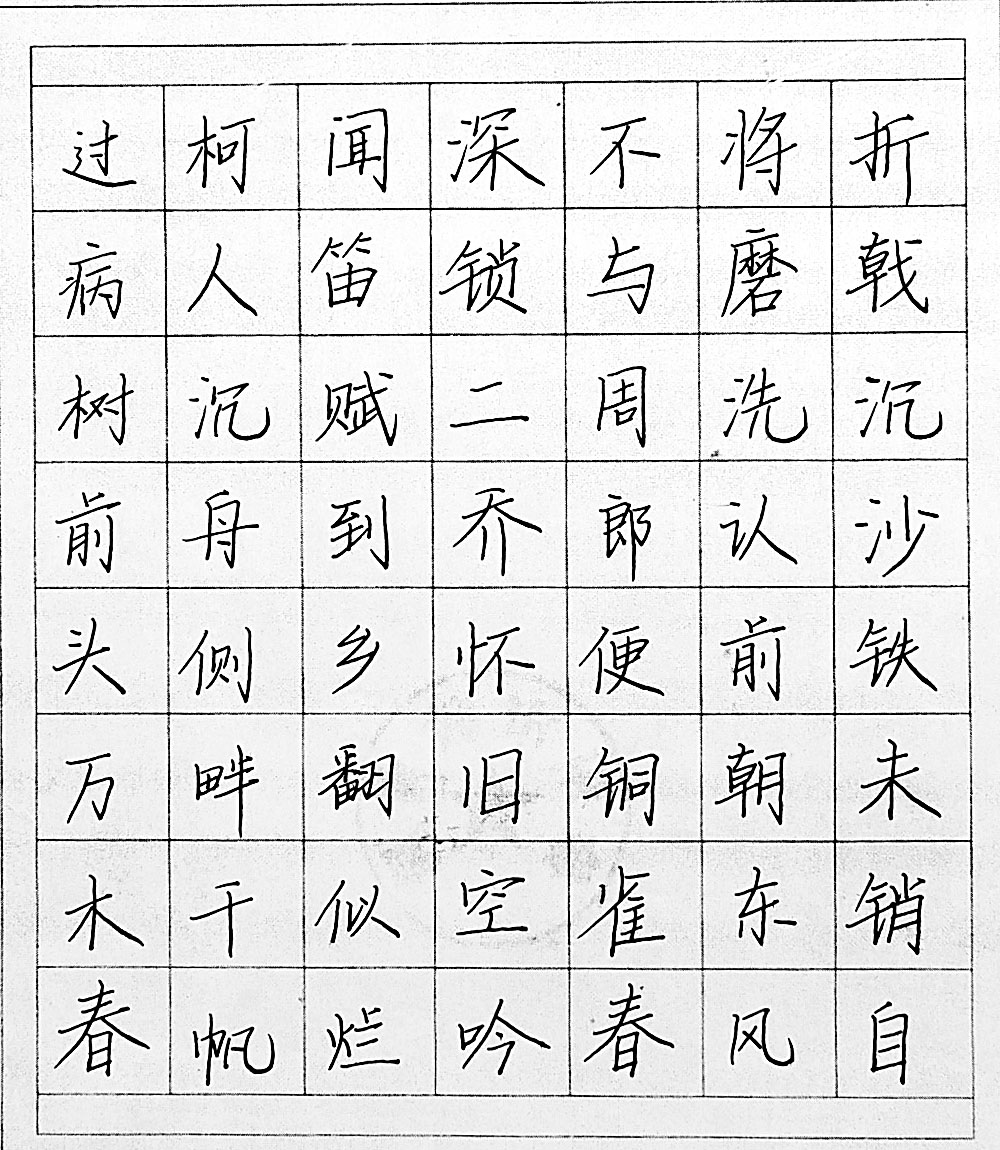 折戟沉沙铁未销自
将磨洗认前朝东风
不与周郎便铜雀春
深锁二乔怀旧空吟
闻笛赋到乡翻似烂
柯人沉舟侧畔千帆
过病树前头万木春